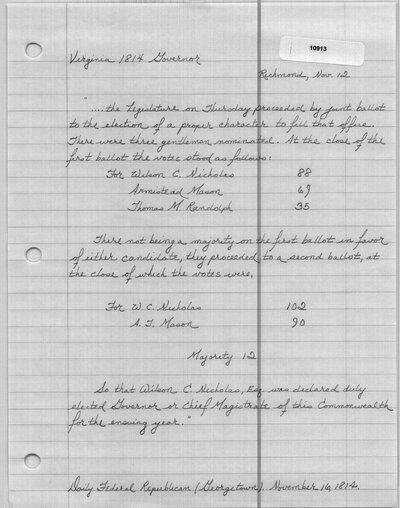 10913
Virginia 1814 Governor
Richmond, Nov. 12
"....the Legislature on Thursday proceeded by joint ballot
to the election of a proper character to fill that office.
There were three gentlemen nominated. At the close of the
first ballot the votes stood as follows:
For Wilson C. Nicholas 88
Armistead Mason 69
Thomas M. Randolph 35
There not being a majority on the first ballot in favor
of either candidate, they proceeded to a second ballot, at
the close of which the votes were,
For W. C. Nicholas 102
A. T. Mason 90
Majority 12
So that Wilson C. Nicholas, Esq. was declared duly
elected Governor or Chief Magistrate of this Commonwealth
for the ensuing year."
Daily Federal Republican (Georgetown). November 16, 1814.